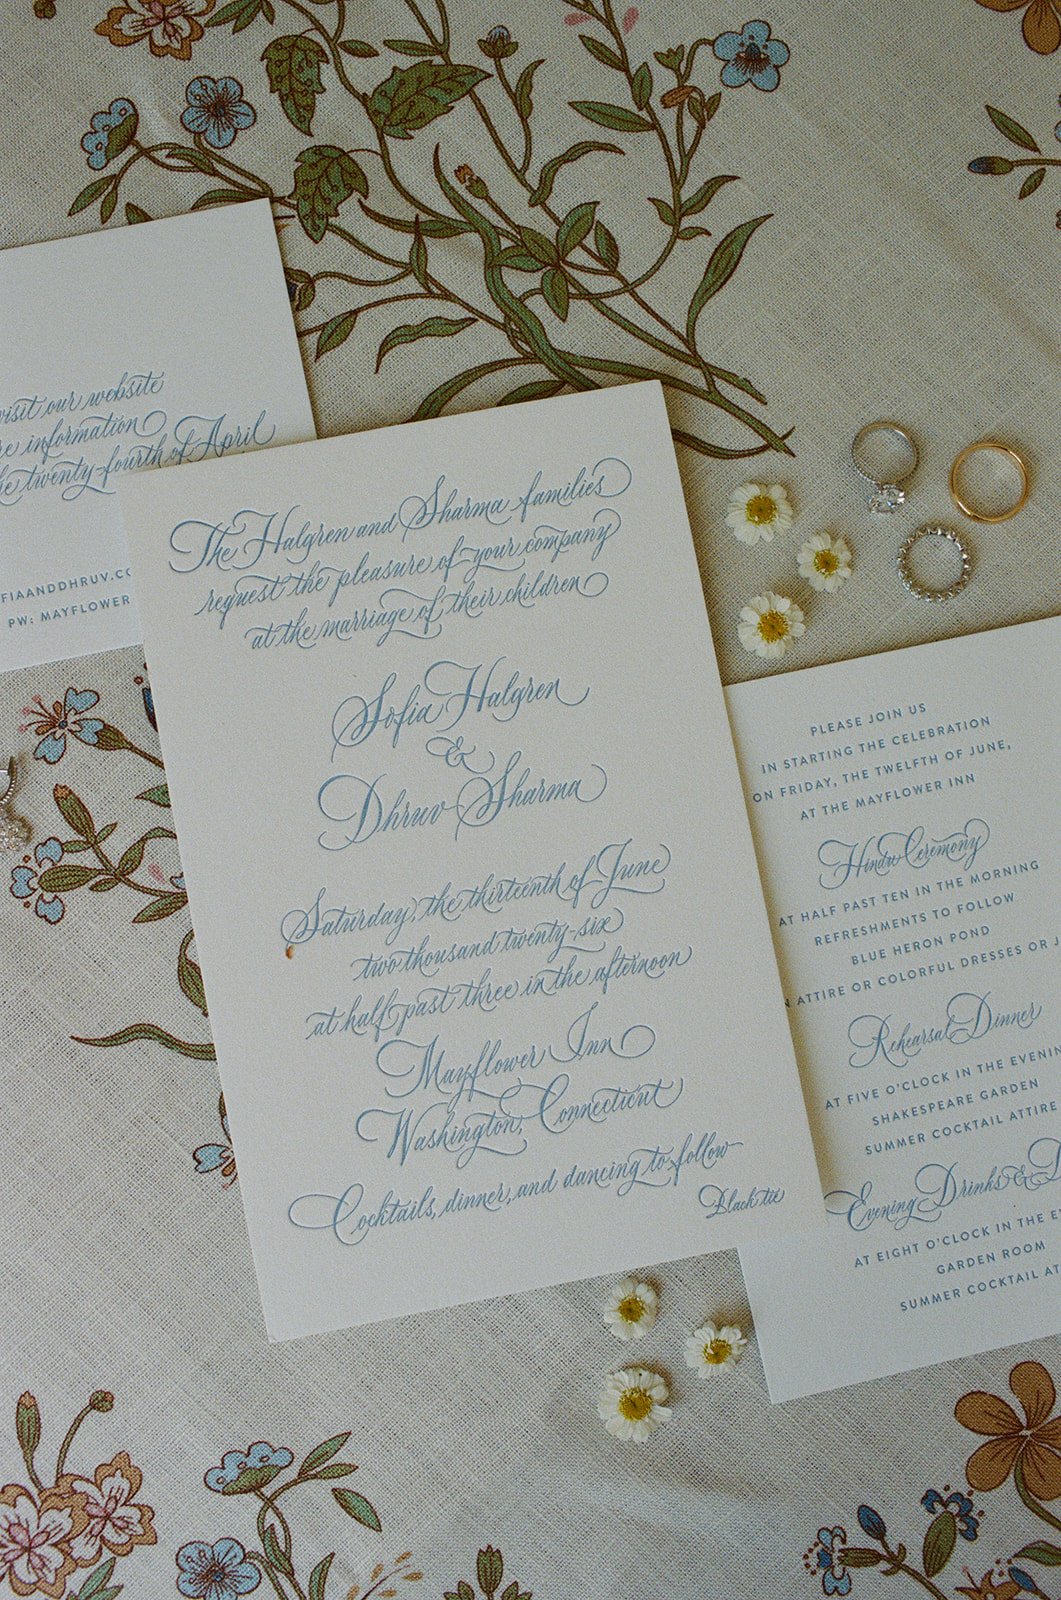 visit our website
information
twenty-fourth of April
PW: MAYFLOWER
The Halgren and Sharma families
request the pleasure of your company
at the marriage of their children
Sofia Halgren
&
Dhruv Sharma
Saturday, the thirteenth of June
two thousand twenty-six
at half past three in the afternoon
Mayflower Inn
Washington, Connecticut
Cocktails, dinner, and dancing to follow
Black tie
PLEASE JOIN US
IN STARTING THE CELEBRATION
ON FRIDAY, THE TWELFTH OF JUNE,
AT THE MAYFLOWER INN
Hindu Ceremony
AT HALF PAST TEN IN THE MORNING
REFRESHMENTS TO FOLLOW
BLUE HERON POND
ATTIRE OR COLORFUL DRESSES OR
Rehearsal Dinner
AT FIVE O'CLOCK IN THE EVENIN
SHAKESPEARE GARDEN
SUMMER COCKTAIL ATTIRE
Evening Drinks &
AT EIGHT O'CLOCK IN THE
GARDEN ROOM
SUMMER COCKTAIL